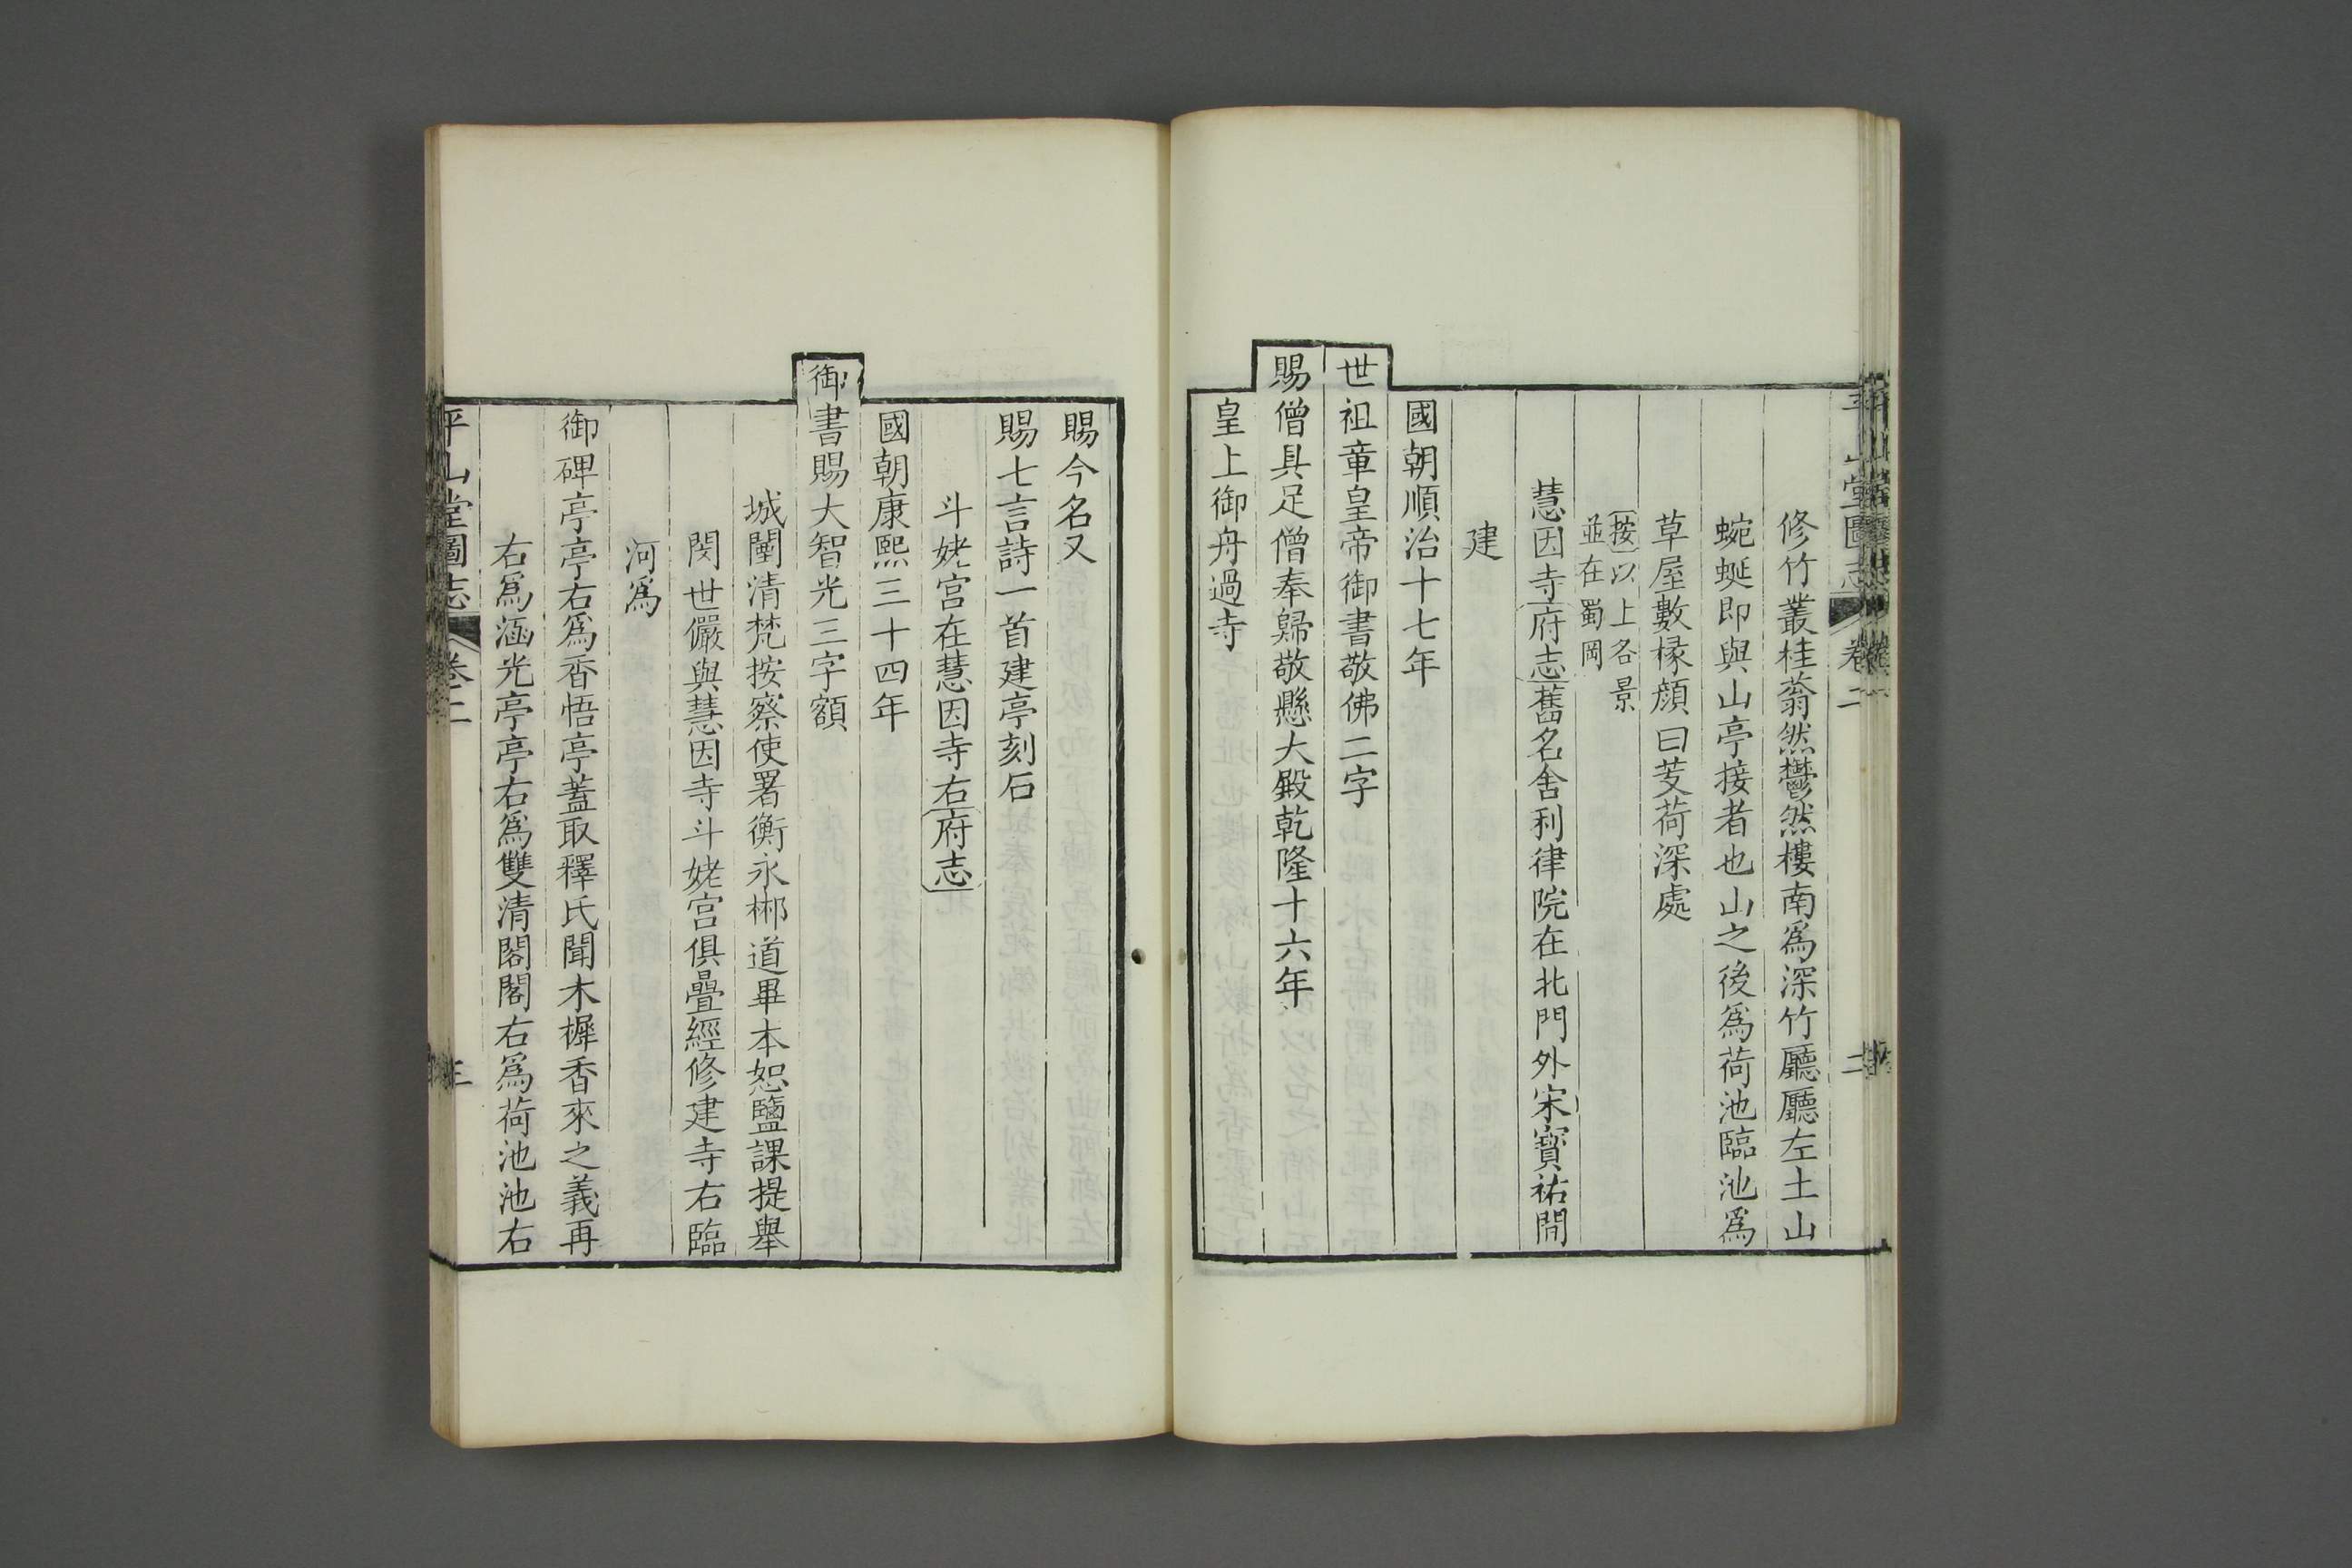 平山堂圖志 卷二 二
修竹叢桂蓊然鬱然樓南爲深竹廳廳左土山
蜿蜒即與山亭接者也山之後爲荷池臨池爲
草屋數椽顔曰芰荷深處
按以上各景
並在蜀岡
慧因寺府志舊名舍利律院在北門外宋寶祐間
建
國朝順治十七年
世祖章皇帝御書敬佛二字
賜僧具足僧奉歸敬懸大殿乾隆十六年
皇上御舟過寺
賜今名又
賜七言詩一首建亭刻石
斗姥宮在慧因寺右府志
國朝康熙三十四年
御書賜大智光三字額
城闉清梵按察使署衡永郴道畢本恕鹽課提舉
閔世儼與慧因寺斗姥宮俱疊經修建寺右臨
河爲
御碑亭亭右爲香悟亭蓋取釋氏聞木樨香來之義再
右爲涵光亭亭右爲雙清閣閣右爲荷池池右
平山堂圖志 卷二 三